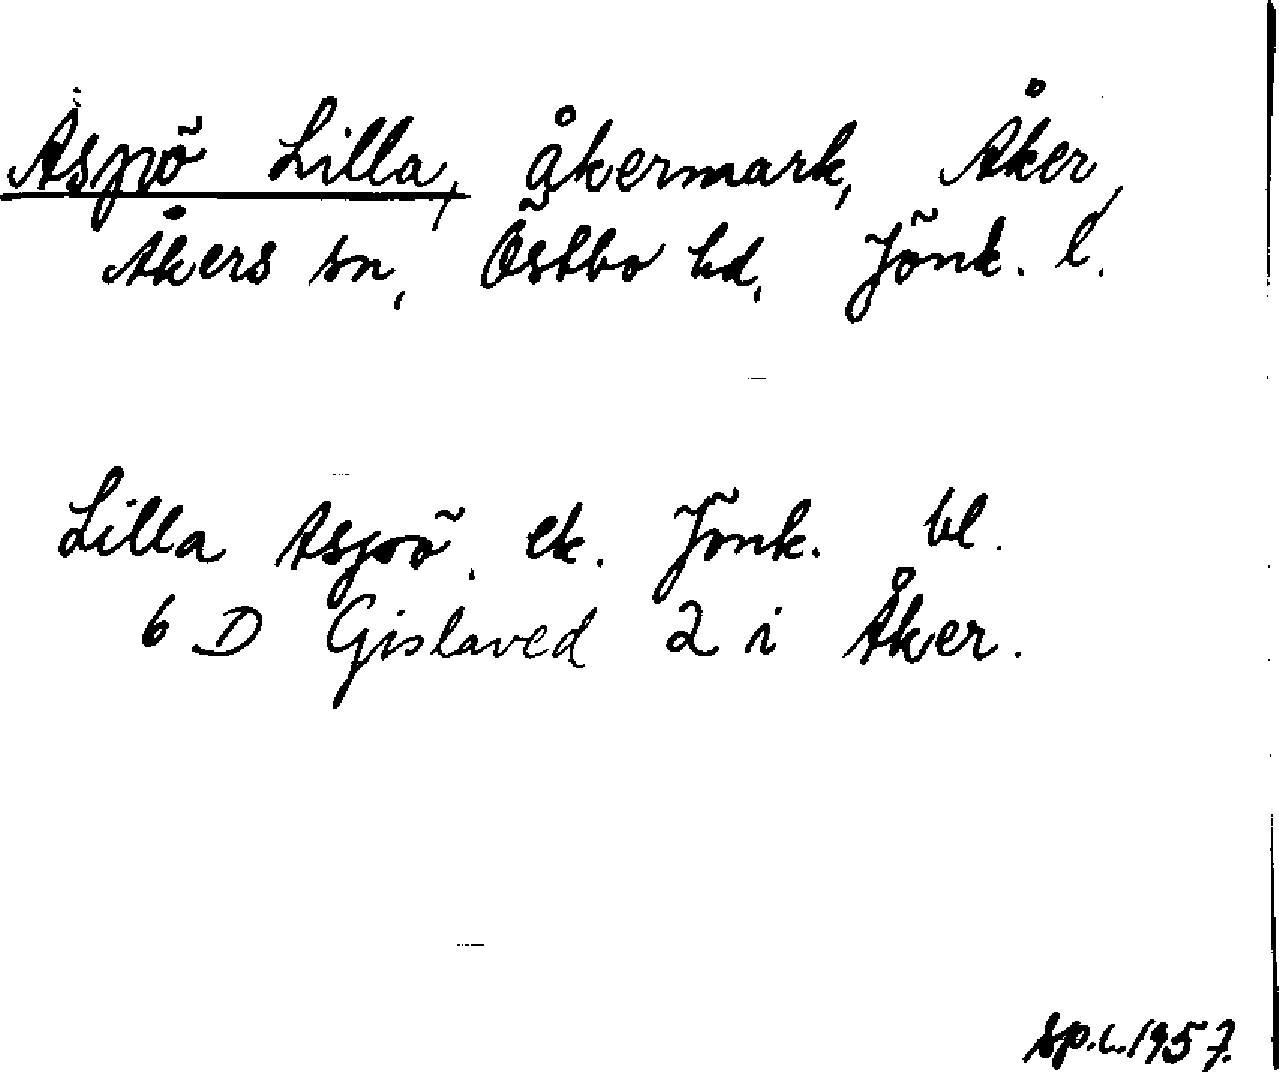 Aspö Lilla, åkermark, Åker,
Åkers sn, Östbo hd, Jönk. l.
Lilla Aspö. ek. Jönk. bl.
6 D Gislaved 2 i Åker.
sp.l. 1957.